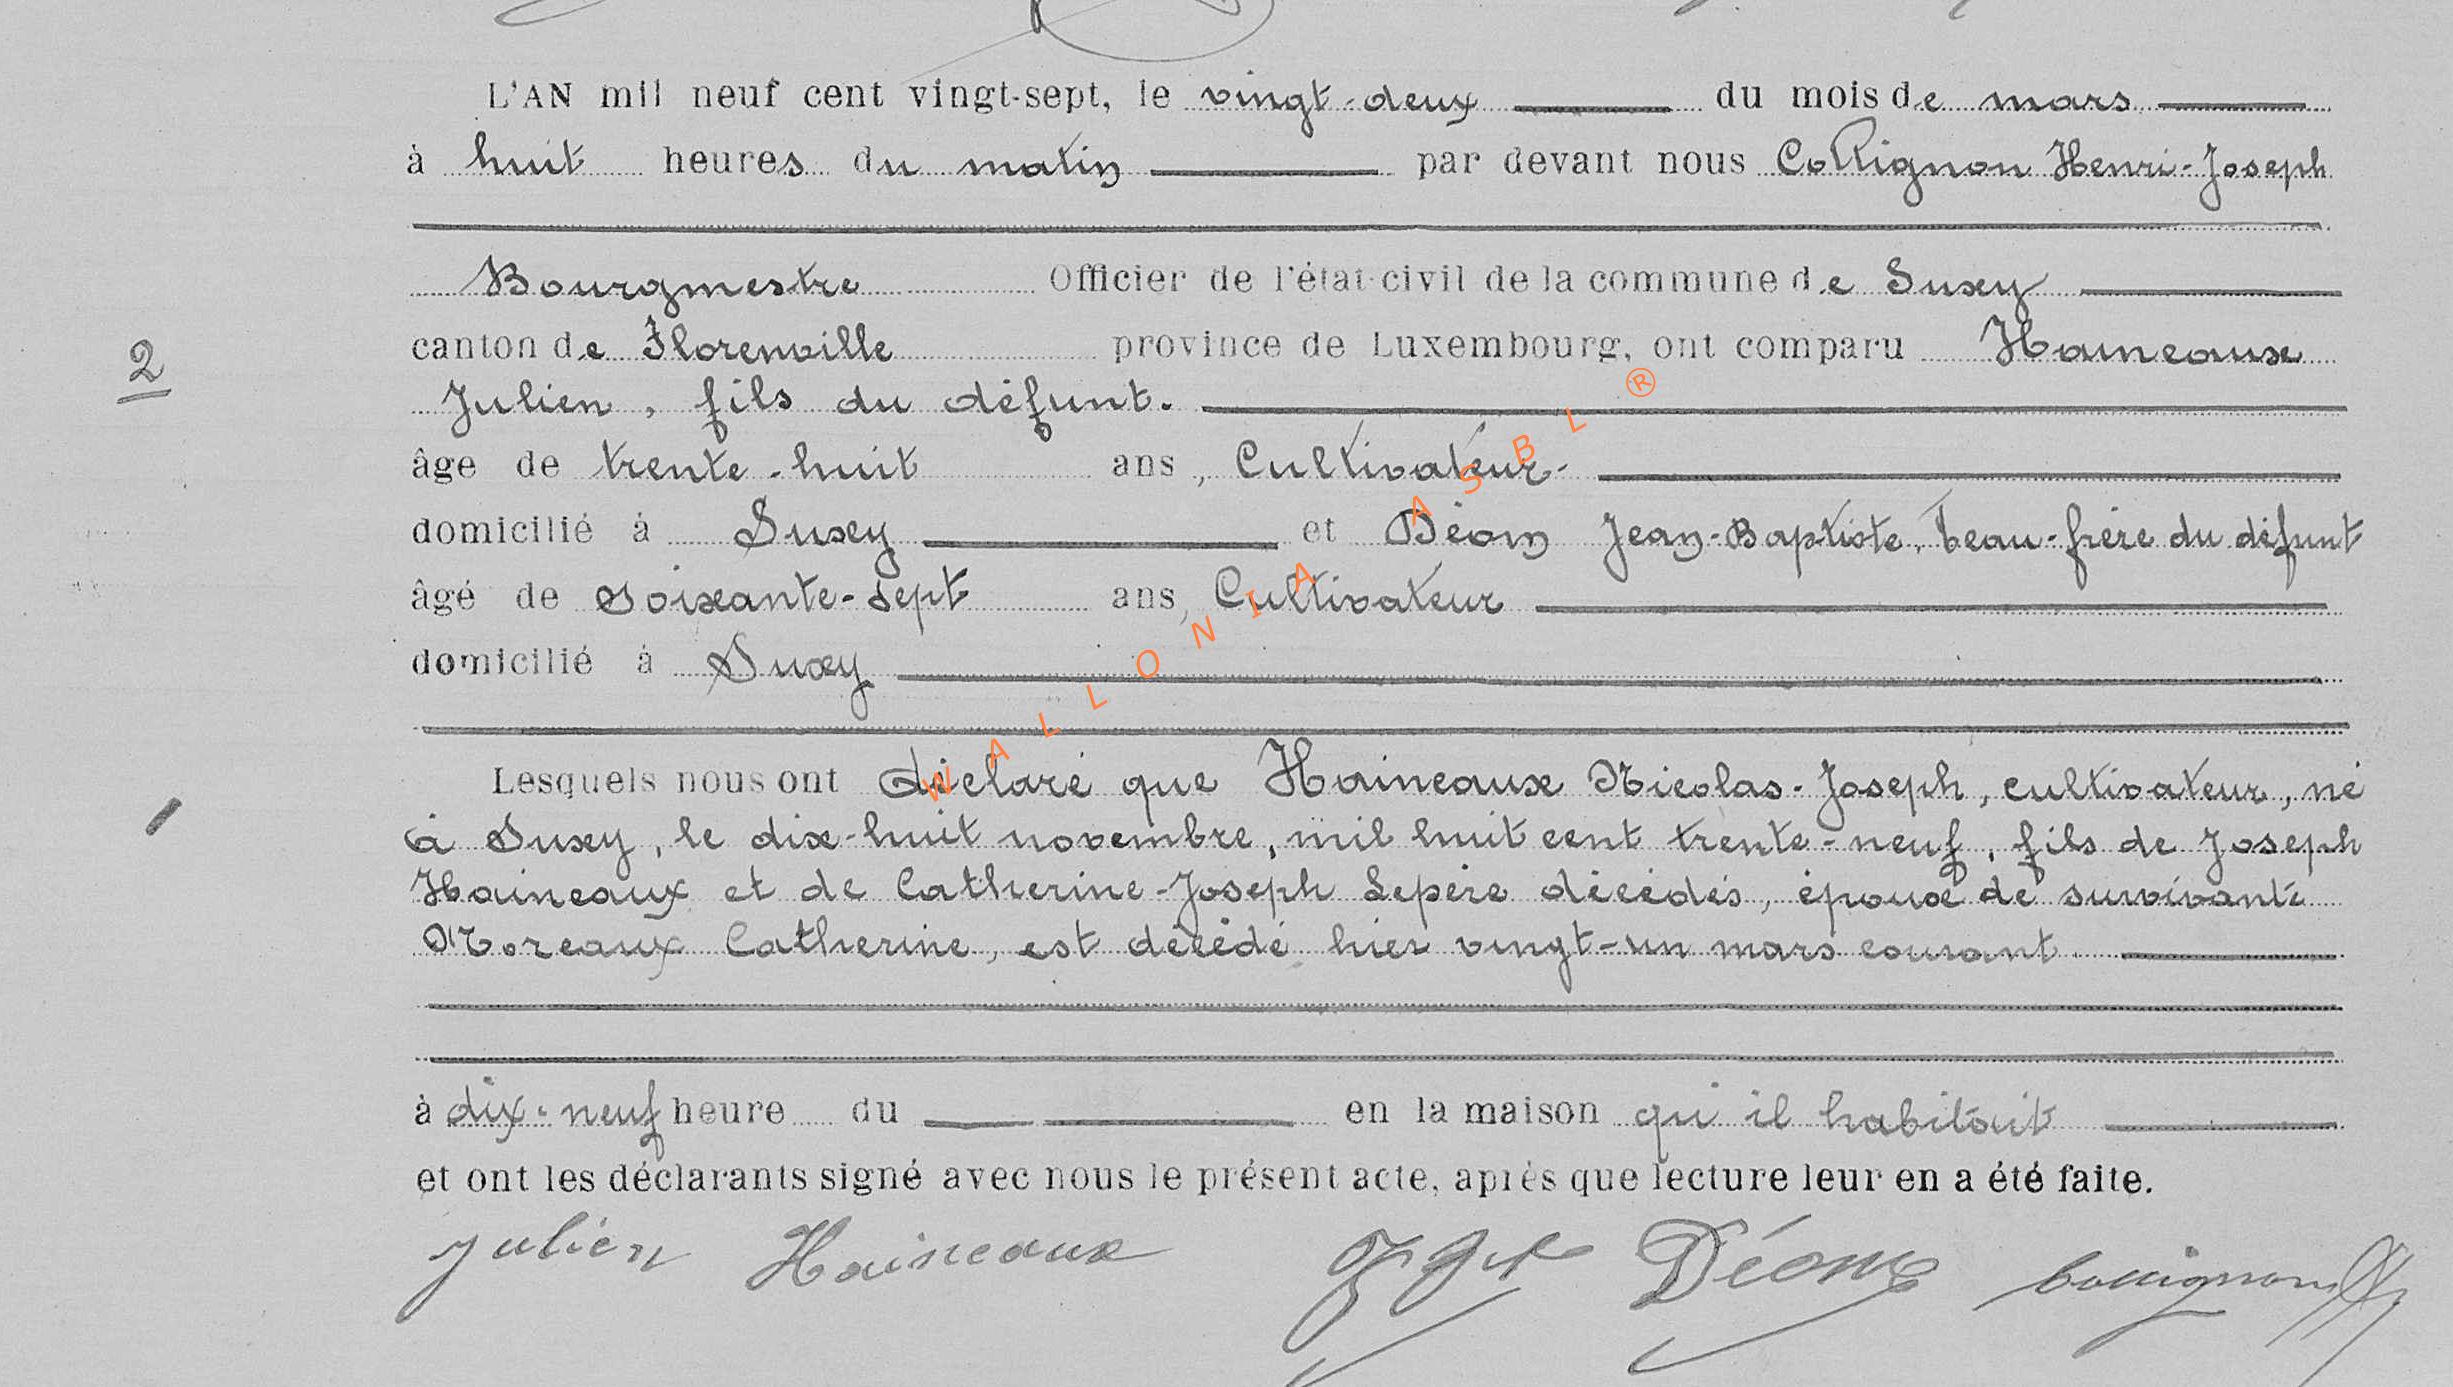 L'AN mil neuf cent vingt-sept, le vingt-deux du mois de mars
à huit heures du matin par devant nous Collignon Henri-Joseph
Bourgmestre Officier de l'état-civil de la commune de Suxy
2
canton de Florenville province de Luxembourg, ont comparu Haineaux
Julien, fils du défunt.
âge de trente-huit ans, Cultivateur.
domicilié à Suxy et Déom Jean-Baptiste, beau-frère du défunt
âgé de soixante-sept ans, Cultivateur
domicilié à Suxy
Lesquels nous ont déclaré que Haineaux Nicolas-Joseph, cultivateur, né
à Suxy, le dix-huit novembre, mil huit cent trente-neuf, fils de Joseph
Haineaux et de Catherine-Joseph Lepère décédés, époux de survivante
Moreaux Catherine, est décédé hier vingt-un mars courant.
à dix-neuf heure du en la maison qu'il habitait
et ont les déclarants signé avec nous le présent acte, après que lecture leur en a été faite.
Julien Haineaux Déom Collignon
WALLONIA ASBL ®